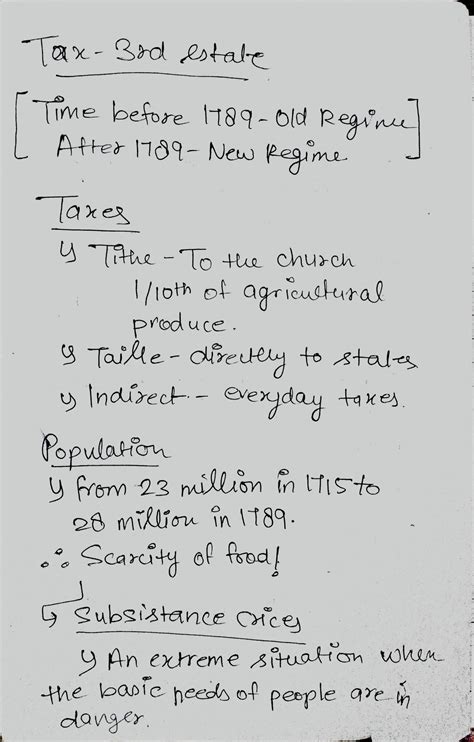 Tax - 3rd estate
[Time before 1789 - Old Regime
After 1789 - New Regime]
Taxes
y Tithe - To the church
1/10th of agricultural
produce.
y Taille - directly to states
y Indirect - everyday taxes.
Population
y from 23 million in 1715 to
28 million in 1789.
∴ Scarcity of food!
↳ Subsistance crices
y An extreme situation when
the basic needs of people are in
danger.